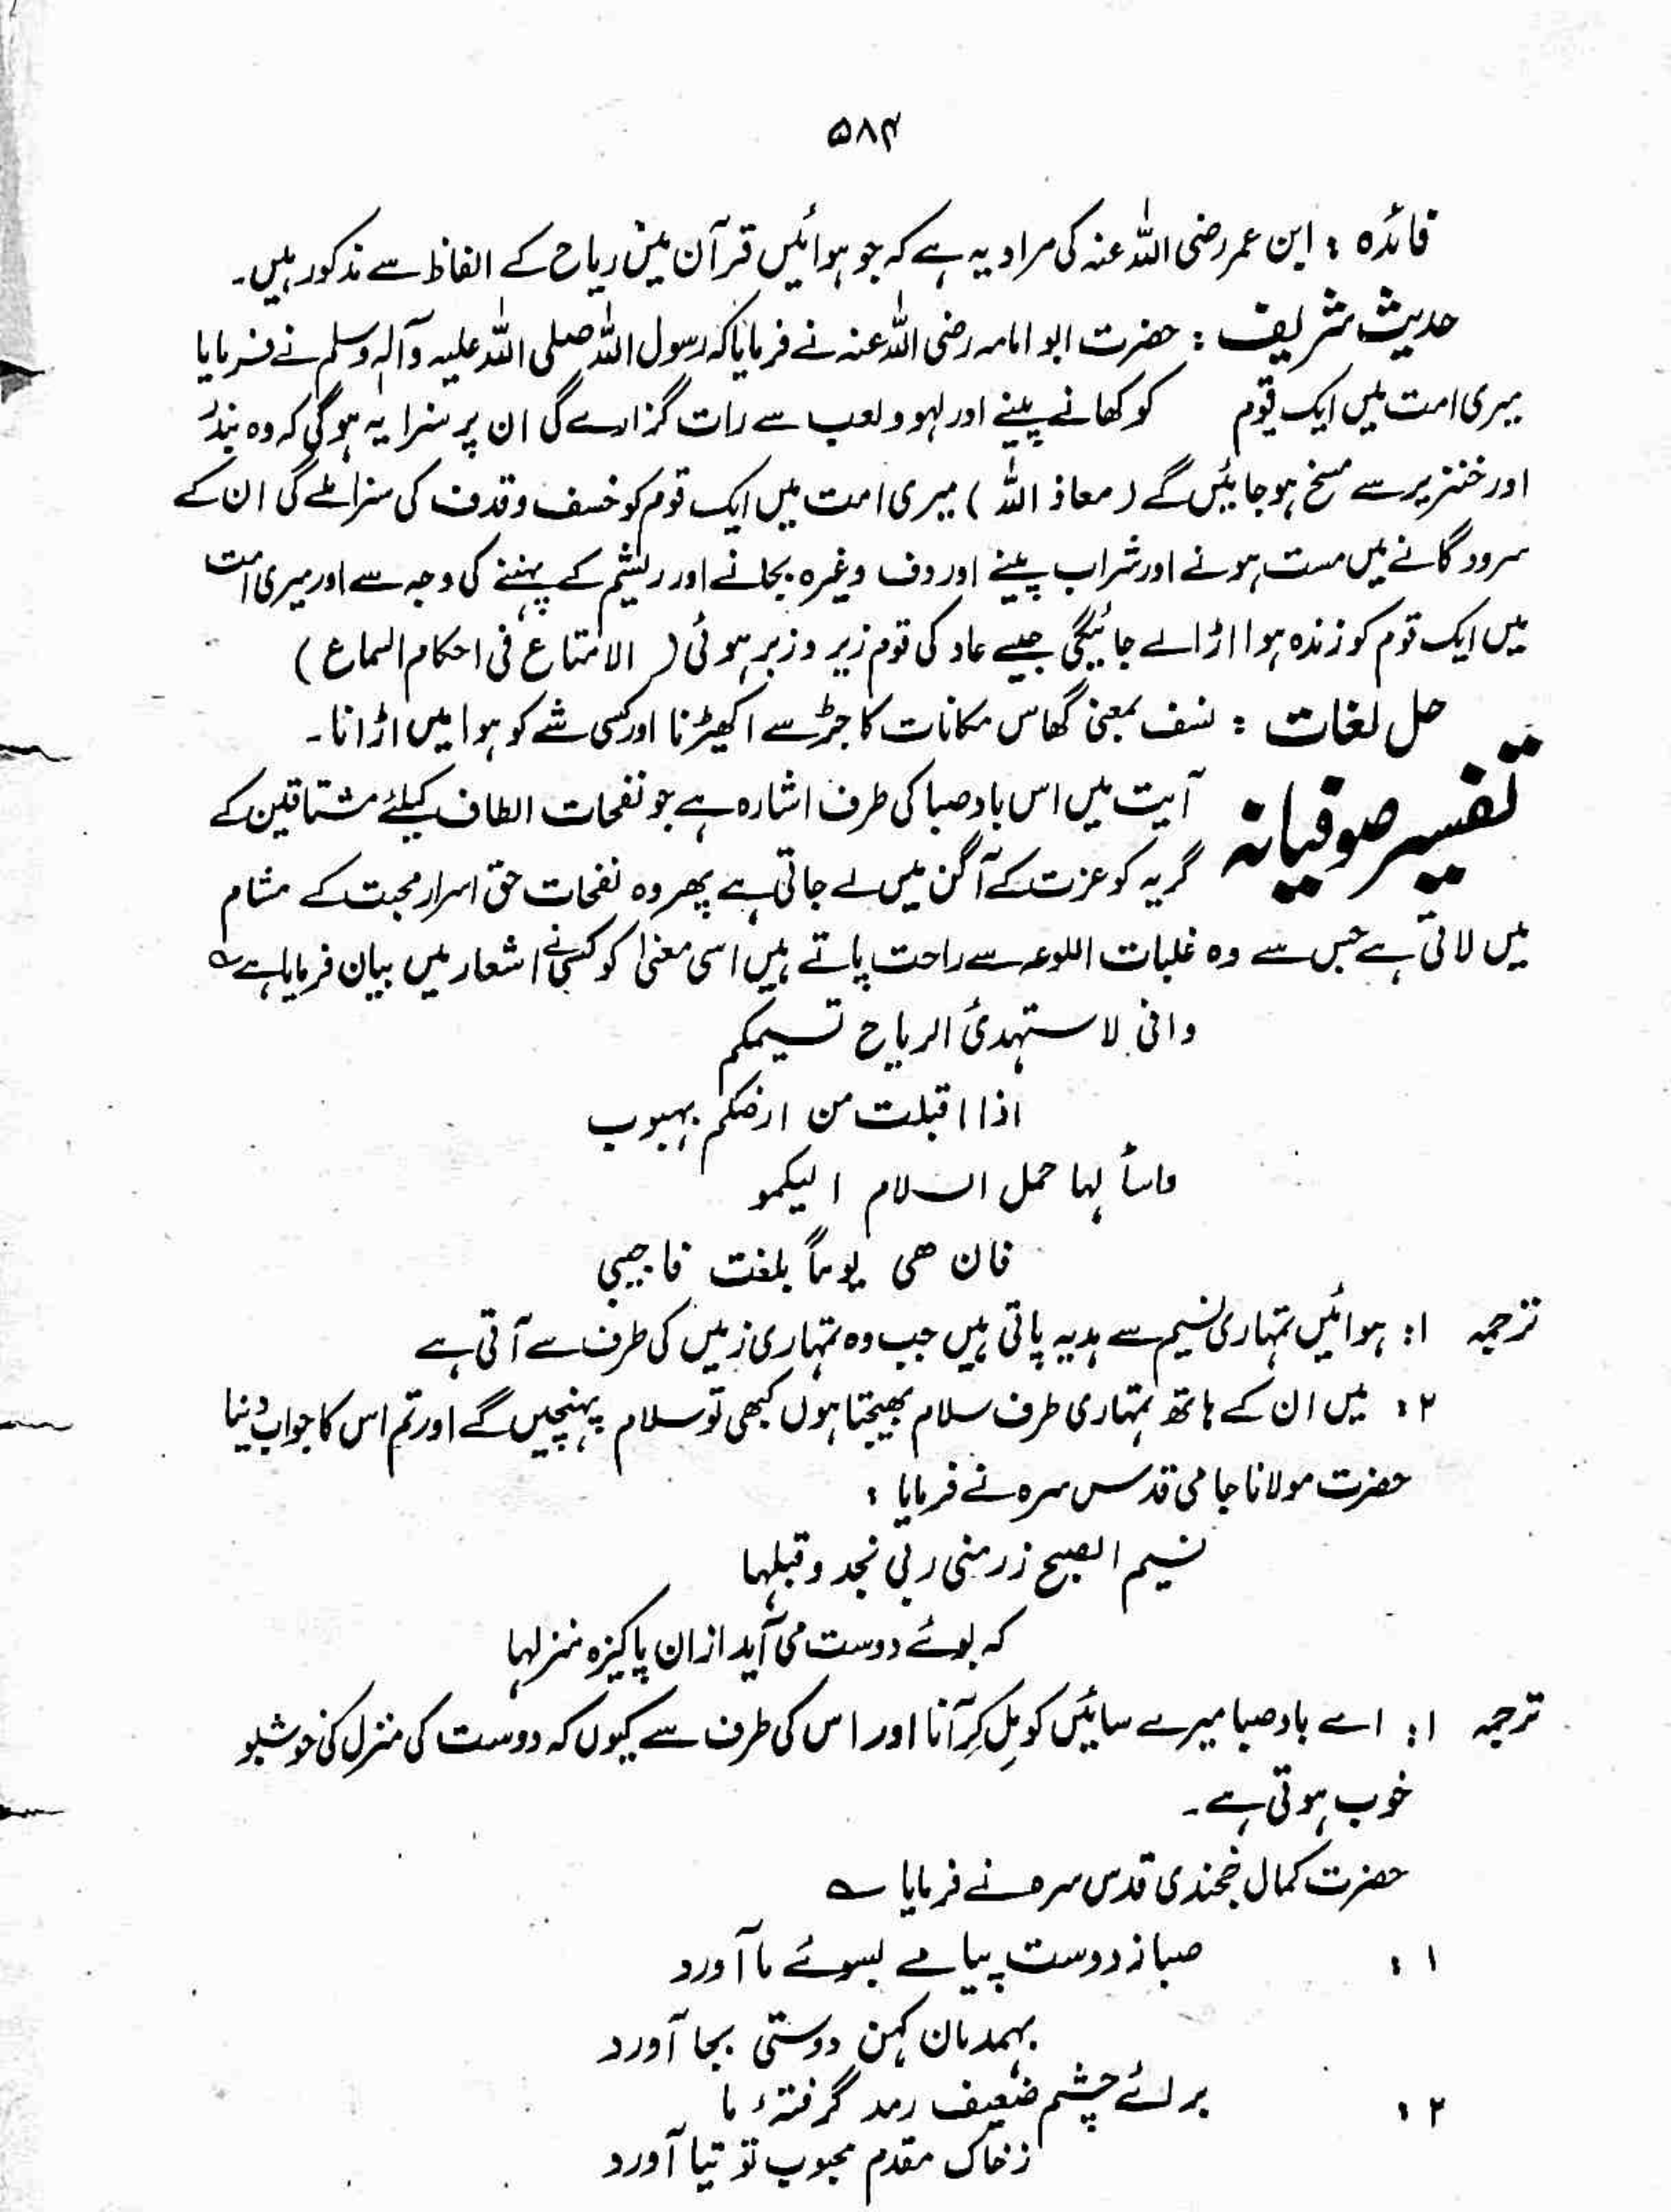 ۵۸۴
فائدہ : ابن عمر رضی اللہ عنہ کی مراد یہ ہے کہ جو ہوائیں قرآن میں ریاح کے الفاظ سے مذکور ہیں۔
حدیث شریف : حضرت ابو امامہ رضی اللہ عنہ نے فرمایا کہ رسول اللہ صلی اللہ علیہ وآلہ وسلم نے فرمایا
میری امت میں ایک قوم کو کھانے پینے اور لہو و لعب سے رات گزارے گی ان پر سزا یہ ہوگی کہ وہ بندر
اور خنزیر سے مسخ ہوجائیں گے (معاذ اللہ) میری امت میں ایک قوم کو خسف و قذف کی سزا ملے گی ان کے
سرود گانے میں مست ہونے اور شراب پینے اور دف وغیرہ بجانے اور ریشم کے پہننے کی وجہ سے اور میری امت
میں ایک قوم کو زندہ ہوا اڑا لے جائیگی جیسے عاد کی قوم زیر و زبر ہوئی (الامتاع فی احکام السماع)
حل لغات : نسف بمعنی گھاس مکانات کا جڑ سے اکھیڑنا اور کسی شے کو ہوا میں اڑانا۔
تفسیر صوفیانہ آیت میں اس باد صبا کی طرف اشارہ ہے جو نفحات الطاف کیلئے مشتاقین کے
گریہ کو عزت کے آنگن میں لے جاتی ہے پھر وہ نفحات حق اسرار محبت کے مشام
میں لاتی ہے جس سے وہ غلبات اللوعہ سے راحت پاتے ہیں اسی معنیٰ کو کسی نے اشعار میں بیان فرمایا ہے ؎
وانی لاستہدیٔ الریاح نسیمکم
اذا اقبلت من ارضکم بہبوب
واسأ لہا حمل السلام الیکمو
فان ھی یوماً بلغت فاجیبی
ترجمہ ۱: ہوائیں تمہاری نسیم سے ہدیہ پاتی ہیں جب وہ تمہاری زمیں کی طرف سے آتی ہے
۲: میں ان کے ہاتھ تمہاری طرف سلام بھیجتا ہوں کبھی تو سلام پہنچیں گے اور تم اس کا جواب دینا
حضرت مولانا جامی قدس سرہ نے فرمایا :
نسیم الصبح زرمنی ربی نجد وقبلہا
کہ بوئے دوست می آید ازان پاکیزہ منزلہا
ترجمہ ۱: اے باد صبا میرے سائیں کو مل کر آنا اور اس کی طرف سے کیوں کہ دوست کی منزل کی خوشبو
خوب ہوتی ہے۔
حضرت کمال خجندی قدس سرہ نے فرمایا ؎
۱: صبا ز دوست پیامے بسوئے ما آورد
بہمدمان کہن دوستی بجا آورد
۲: برائے چشم ضعیف رمد گرفتہء ما
زخاک مقدم محبوب تو تیا آورد